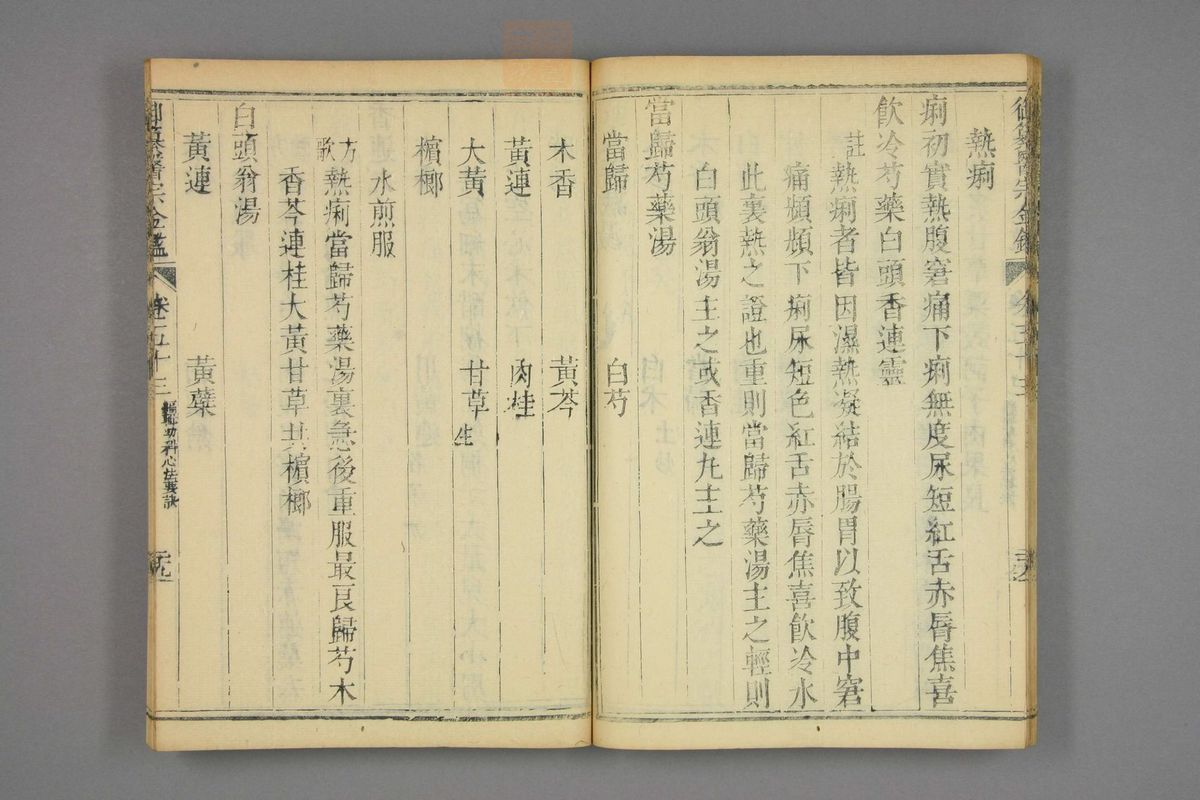 熱痢
痢初實熱腹窘痛下痢無度尿短紅舌赤脣焦喜
飲冷芍藥白頭香連靈
註 熱痢者皆因濕熱凝結於腸胃以致腹中窘
痛頻頻下痢尿短色紅舌赤脣焦喜飲冷水
此裏熱之證也重則當歸芍藥湯主之輕則
白頭翁湯主之或香連丸主之
當歸芍藥湯
當歸 白芍
木香 黃芩
黃連 肉桂
大黃 甘草 生
檳榔
水煎服
方歌 熱痢當歸芍藥湯裏急後重服最良歸芍木
香芩連桂大黃甘草共檳榔
白頭翁湯
黃連 黃蘗
御纂醫宗金鑑 卷五十三 編輯幼科心法要訣